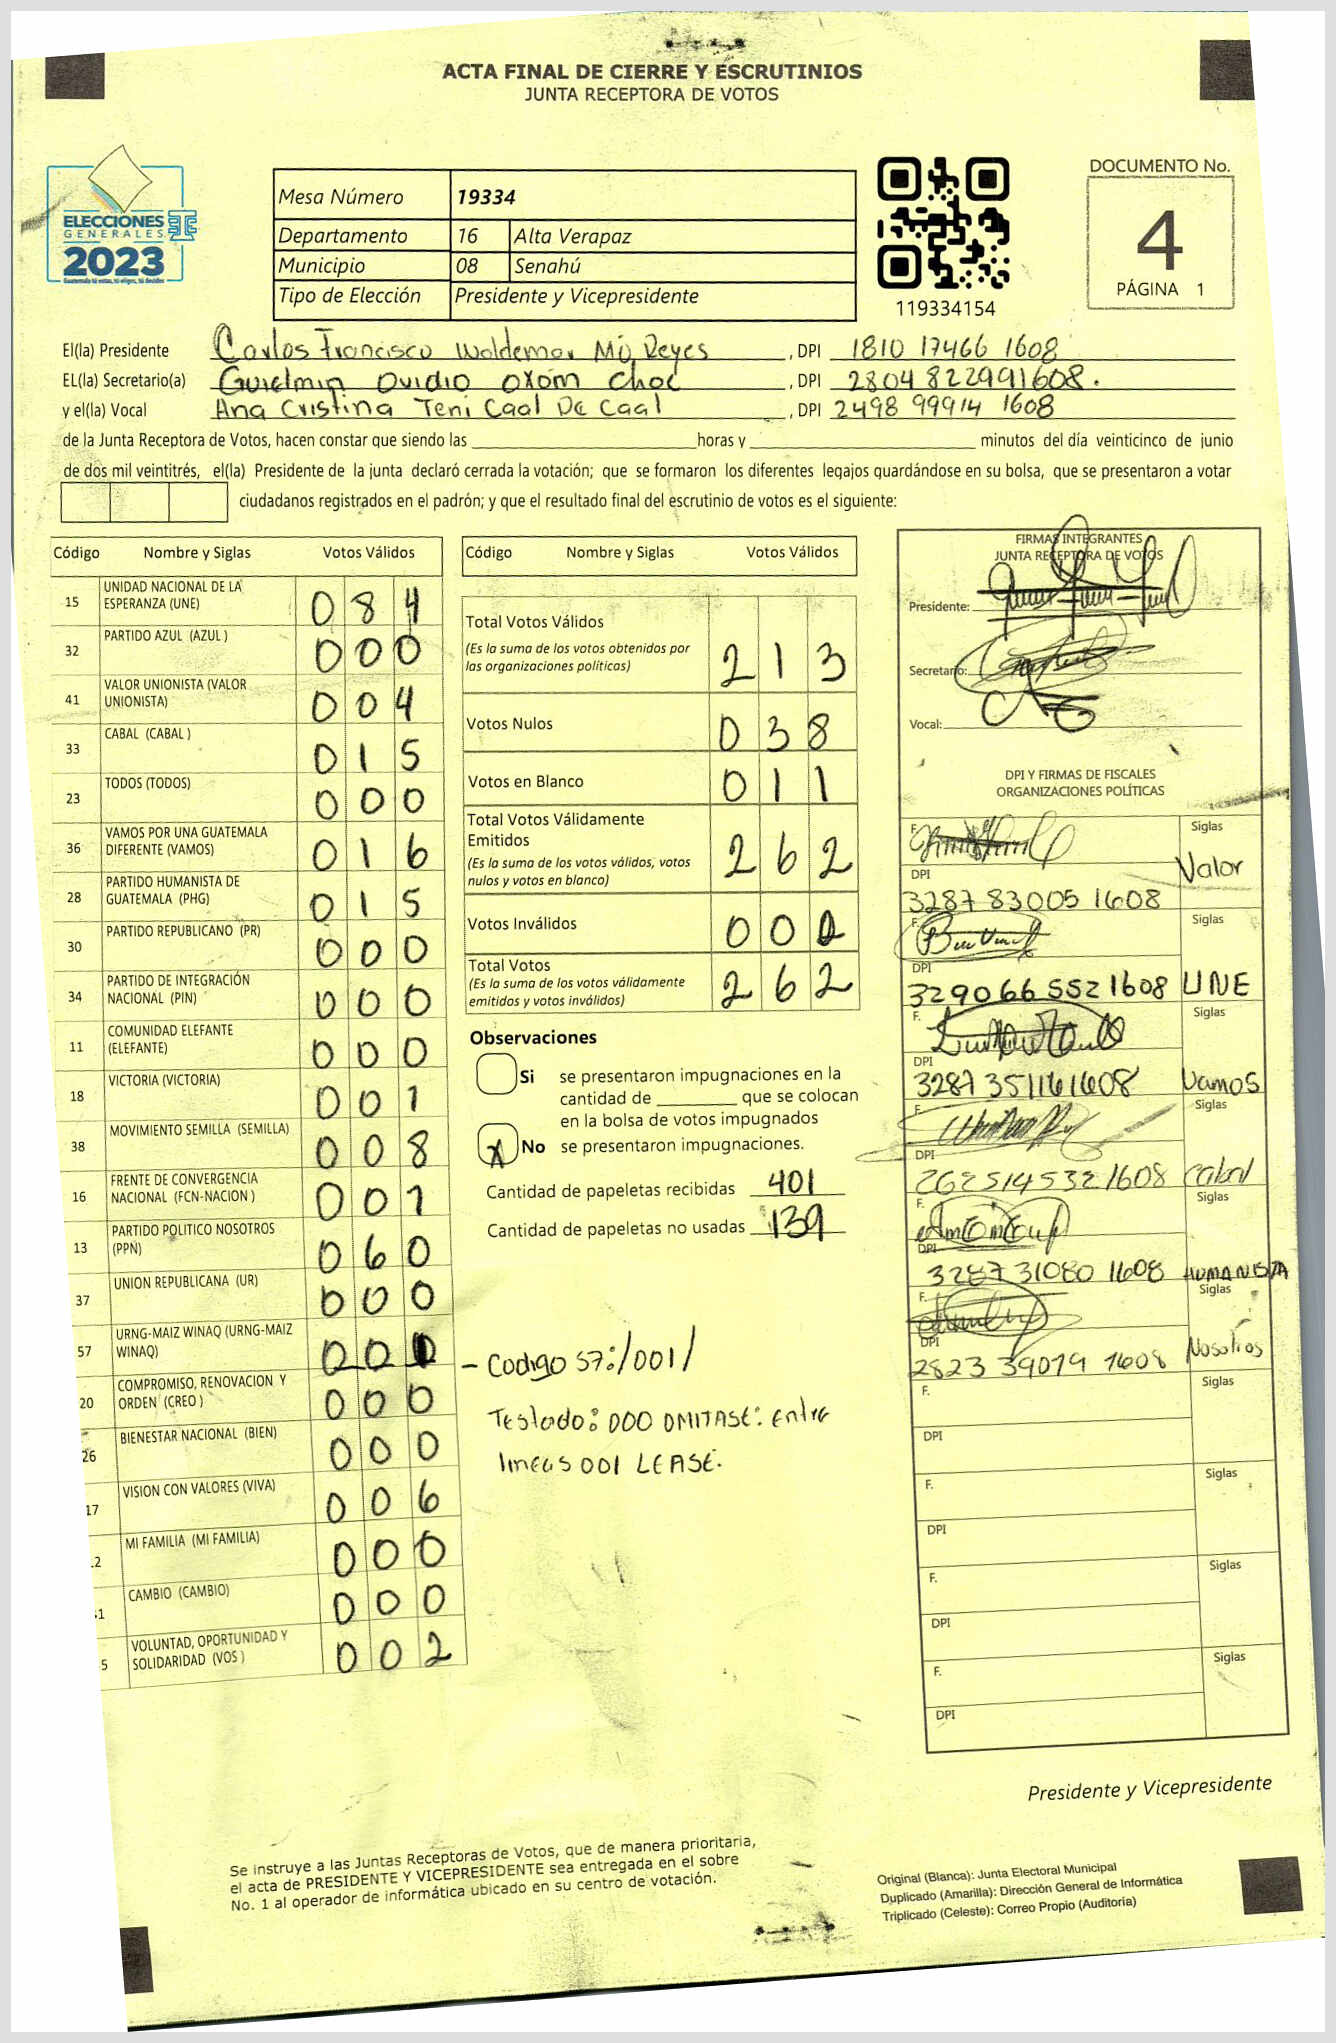 ACTA FINAL DE CIERRE Y ESCRUTINIOS
JUNTA RECEPTORA DE VOTOS
ELECCIONES
GENERALES
2023
Mesa Número 19334
Departamento 16 Alta Verapaz
Municipio 08 Senahú
Tipo de Elección Presidente y Vicepresidente
119334154
DOCUMENTO No.
4
PÁGINA 1
El(la) Presidente Carlos Francisco Waldemar Mó Reyes , DPI 1810 17466 1608
EL(la) Secretario(a) Guielmin Ovidio Oxom Choc , DPI 2804 82299 1608.
y el(la) Vocal Ana Cristina Teni Caal De Caal , DPI 2498 99914 1608
de la Junta Receptora de Votos, hacen constar que siendo las horas y minutos del día veinticinco de junio
de dos mil veintitrés, el(la) Presidente de la junta declaró cerrada la votación; que se formaron los diferentes legajos quardándose en su bolsa, que se presentaron a votar
ciudadanos registrados en el padrón; y que el resultado final del escrutinio de votos es el siguiente:
Código Nombre y Siglas Votos Válidos
15 UNIDAD NACIONAL DE LA
ESPERANZA (UNE) 084
32 PARTIDO AZUL (AZUL ) 000
41 VALOR UNIONISTA (VALOR
UNIONISTA) 004
33 CABAL (CABAL ) 015
23 TODOS (TODOS) 000
36 VAMOS POR UNA GUATEMALA
DIFERENTE (VAMOS) 016
28 PARTIDO HUMANISTA DE
GUATEMALA (PHG) 015
30 PARTIDO REPUBLICANO (PR) 000
34 PARTIDO DE INTEGRACIÓN
NACIONAL (PIN) 000
11 COMUNIDAD ELEFANTE
(ELEFANTE) 000
18 VICTORIA (VICTORIA) 001
38 MOVIMIENTO SEMILLA (SEMILLA) 008
16 FRENTE DE CONVERGENCIA
NACIONAL (FCN-NACION ) 001
13 PARTIDO POLITICO NOSOTROS
(PPN) 060
37 UNION REPUBLICANA (UR) 000
57 URNG-MAIZ WINAQ (URNG-MAIZ
WINAQ) 001
20 COMPROMISO, RENOVACION Y
ORDEN (CREO ) 000
26 BIENESTAR NACIONAL (BIEN) 000
17 VISION CON VALORES (VIVA) 006
2 MI FAMILIA (MI FAMILIA) 000
1 CAMBIO (CAMBIO) 000
5 VOLUNTAD, OPORTUNIDAD Y
SOLIDARIDAD (VOS ) 002
Código Nombre y Siglas Votos Válidos
Total Votos Válidos
(Es la suma de los votos obtenidos por
las organizaciones políticas) 213
Votos Nulos 038
Votos en Blanco 011
Total Votos Válidamente
Emitidos
(Es la suma de los votos válidos, votos
nulos y votos en blanco) 262
Votos Inválidos 000
Total Votos
(Es la suma de los votos válidamente
emitidos y votos inválidos) 262
Observaciones
Si se presentaron impugnaciones en la
cantidad de que se colocan
en la bolsa de votos impugnados
X No se presentaron impugnaciones.
Cantidad de papeletas recibidas 401
Cantidad de papeletas no usadas 139
- Codigo 57:/001/
Testado: 000 OMITASE: Entre
lineas 001 LEASE.
FIRMAS INTEGRANTES
JUNTA RECEPTORA DE VOTOS
Presidente:
Secretario:
Vocal:
DPI Y FIRMAS DE FISCALES
ORGANIZACIONES POLÍTICAS
F. Siglas
DPI Valor
3287 83005 1608
F. Siglas
DPI
3290 66 552 1608 UNE
F. Siglas
DPI
3287 35116 1608 Vamos
F. Siglas
DPI
2625 14532 1608 Cabal
F. Siglas
DPI
3287 31080 1608 HUMANISTA
F. Siglas
DPI
2823 39079 1608 Nosotros
F. Siglas
DPI
F. Siglas
DPI
F. Siglas
DPI
F. Siglas
DPI
Presidente y Vicepresidente
Se instruye a las Juntas Receptoras de Votos, que de manera prioritaria,
el acta de PRESIDENTE Y VICEPRESIDENTE sea entregada en el sobre
No. 1 al operador de informática ubicado en su centro de votación.
Original (Blanca): Junta Electoral Municipal
Duplicado (Amarilla): Dirección General de Informática
Triplicado (Celeste): Correo Propio (Auditoría)